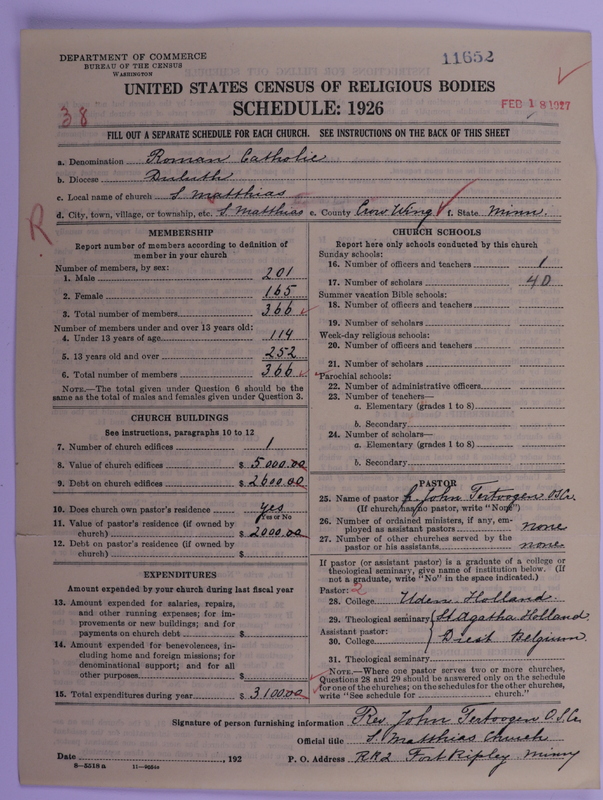 DEPARTMENT OF COMMERCE
BUREAU OF THE CENSUS
WASHINGTON
11652
UNITED STATES CENSUS OF RELIGIOUS BODIES
SCHEDULE: 1926
FEB 18 1927
38
FILL OUT A SEPARATE SCHEDULE FOR EACH CHURCH. SEE INSTRUCTIONS ON THE BACK OF THIS SHEET
a. Denomination Roman Catholic
b. Diocese Duluth
c. Local name of church S. Matthias
d. City, town, village, or township, etc. S. Matthias e. County Crow Wing f. State Minn.
R
MEMBERSHIP
Report number of members according to definition of
member in your church
Number of members, by sex:
1. Male 201
2. Female 165
3. Total number of members 366
Number of members under and over 13 years old:
4. Under 13 years of age 114
5. 13 years old and over 252
6. Total number of members 366
NOTE.—The total given under Question 6 should be
same as the total of males and females given under Question 3.
CHURCH BUILDINGS
See instructions, paragraphs 10 to 12
7. Number of church edifices 1
8. Value of church edifices $ 5000.00
9. Debt on church edifices $ 2600.00
10. Does church own pastor's residence yes
Yes or No
11. Value of pastor's residence (if owned by
church) $ 2000.00
12. Debt on pastor's residence (if owned by
church) $
EXPENDITURES
Amount expended by your church during last fiscal year
13. Amount expended for salaries, repairs,
and other running expenses; for im-
provements or new buildings; and for
payments on church debt $
14. Amount expended for benevolences, in-
cluding home and foreign missions; for
denominational support; and for all
other purposes $
15. Total expenditures during year $ 3100.00
CHURCH SCHOOLS
Report here only schools conducted by this church
Sunday schools:
16. Number of officers and teachers 1
17. Number of scholars 40
Summer vacation Bible schools:
18. Number of officers and teachers
19. Number of scholars
Week-day religious schools:
20. Number of officers and teachers
21. Number of scholars
Parochial schools:
22. Number of administrative officers
23. Number of teachers—
a. Elementary (grades 1 to 8)
b. Secondary
24. Number of scholars—
a. Elementary (grades 1 to 8)
b. Secondary
PASTOR
25. Name of pastor John Tertoogen O.S.Cr.
(If church has no pastor, write "None")
26. Number of ordained ministers, if any, em-
ployed as assistant pastors none
27. Number of other churches served by the
pastor or his assistants none
If pastor (or assistant pastor) is a graduate of a college or
theological seminary, give name of institution below. (If
not a graduate, write "No" in the space indicated.)
Pastor: 2
28. College Uden Holland
29. Theological seminary St Agatha Holland
Assistant pastor:
30. College Diest Belgium
31. Theological seminary
NOTE.—Where one pastor serves two or more churches,
Questions 28 and 29 should be answered only on the schedule
for one of the churches; on the schedules for the other churches,
write "See schedule for church."
Signature of person furnishing information Rev. John Tertoogen O.S.Cr.
Official title S. Matthias Church
Date , 192 P. O. Address RR2 Fort Ripley Minn
8—5518 a